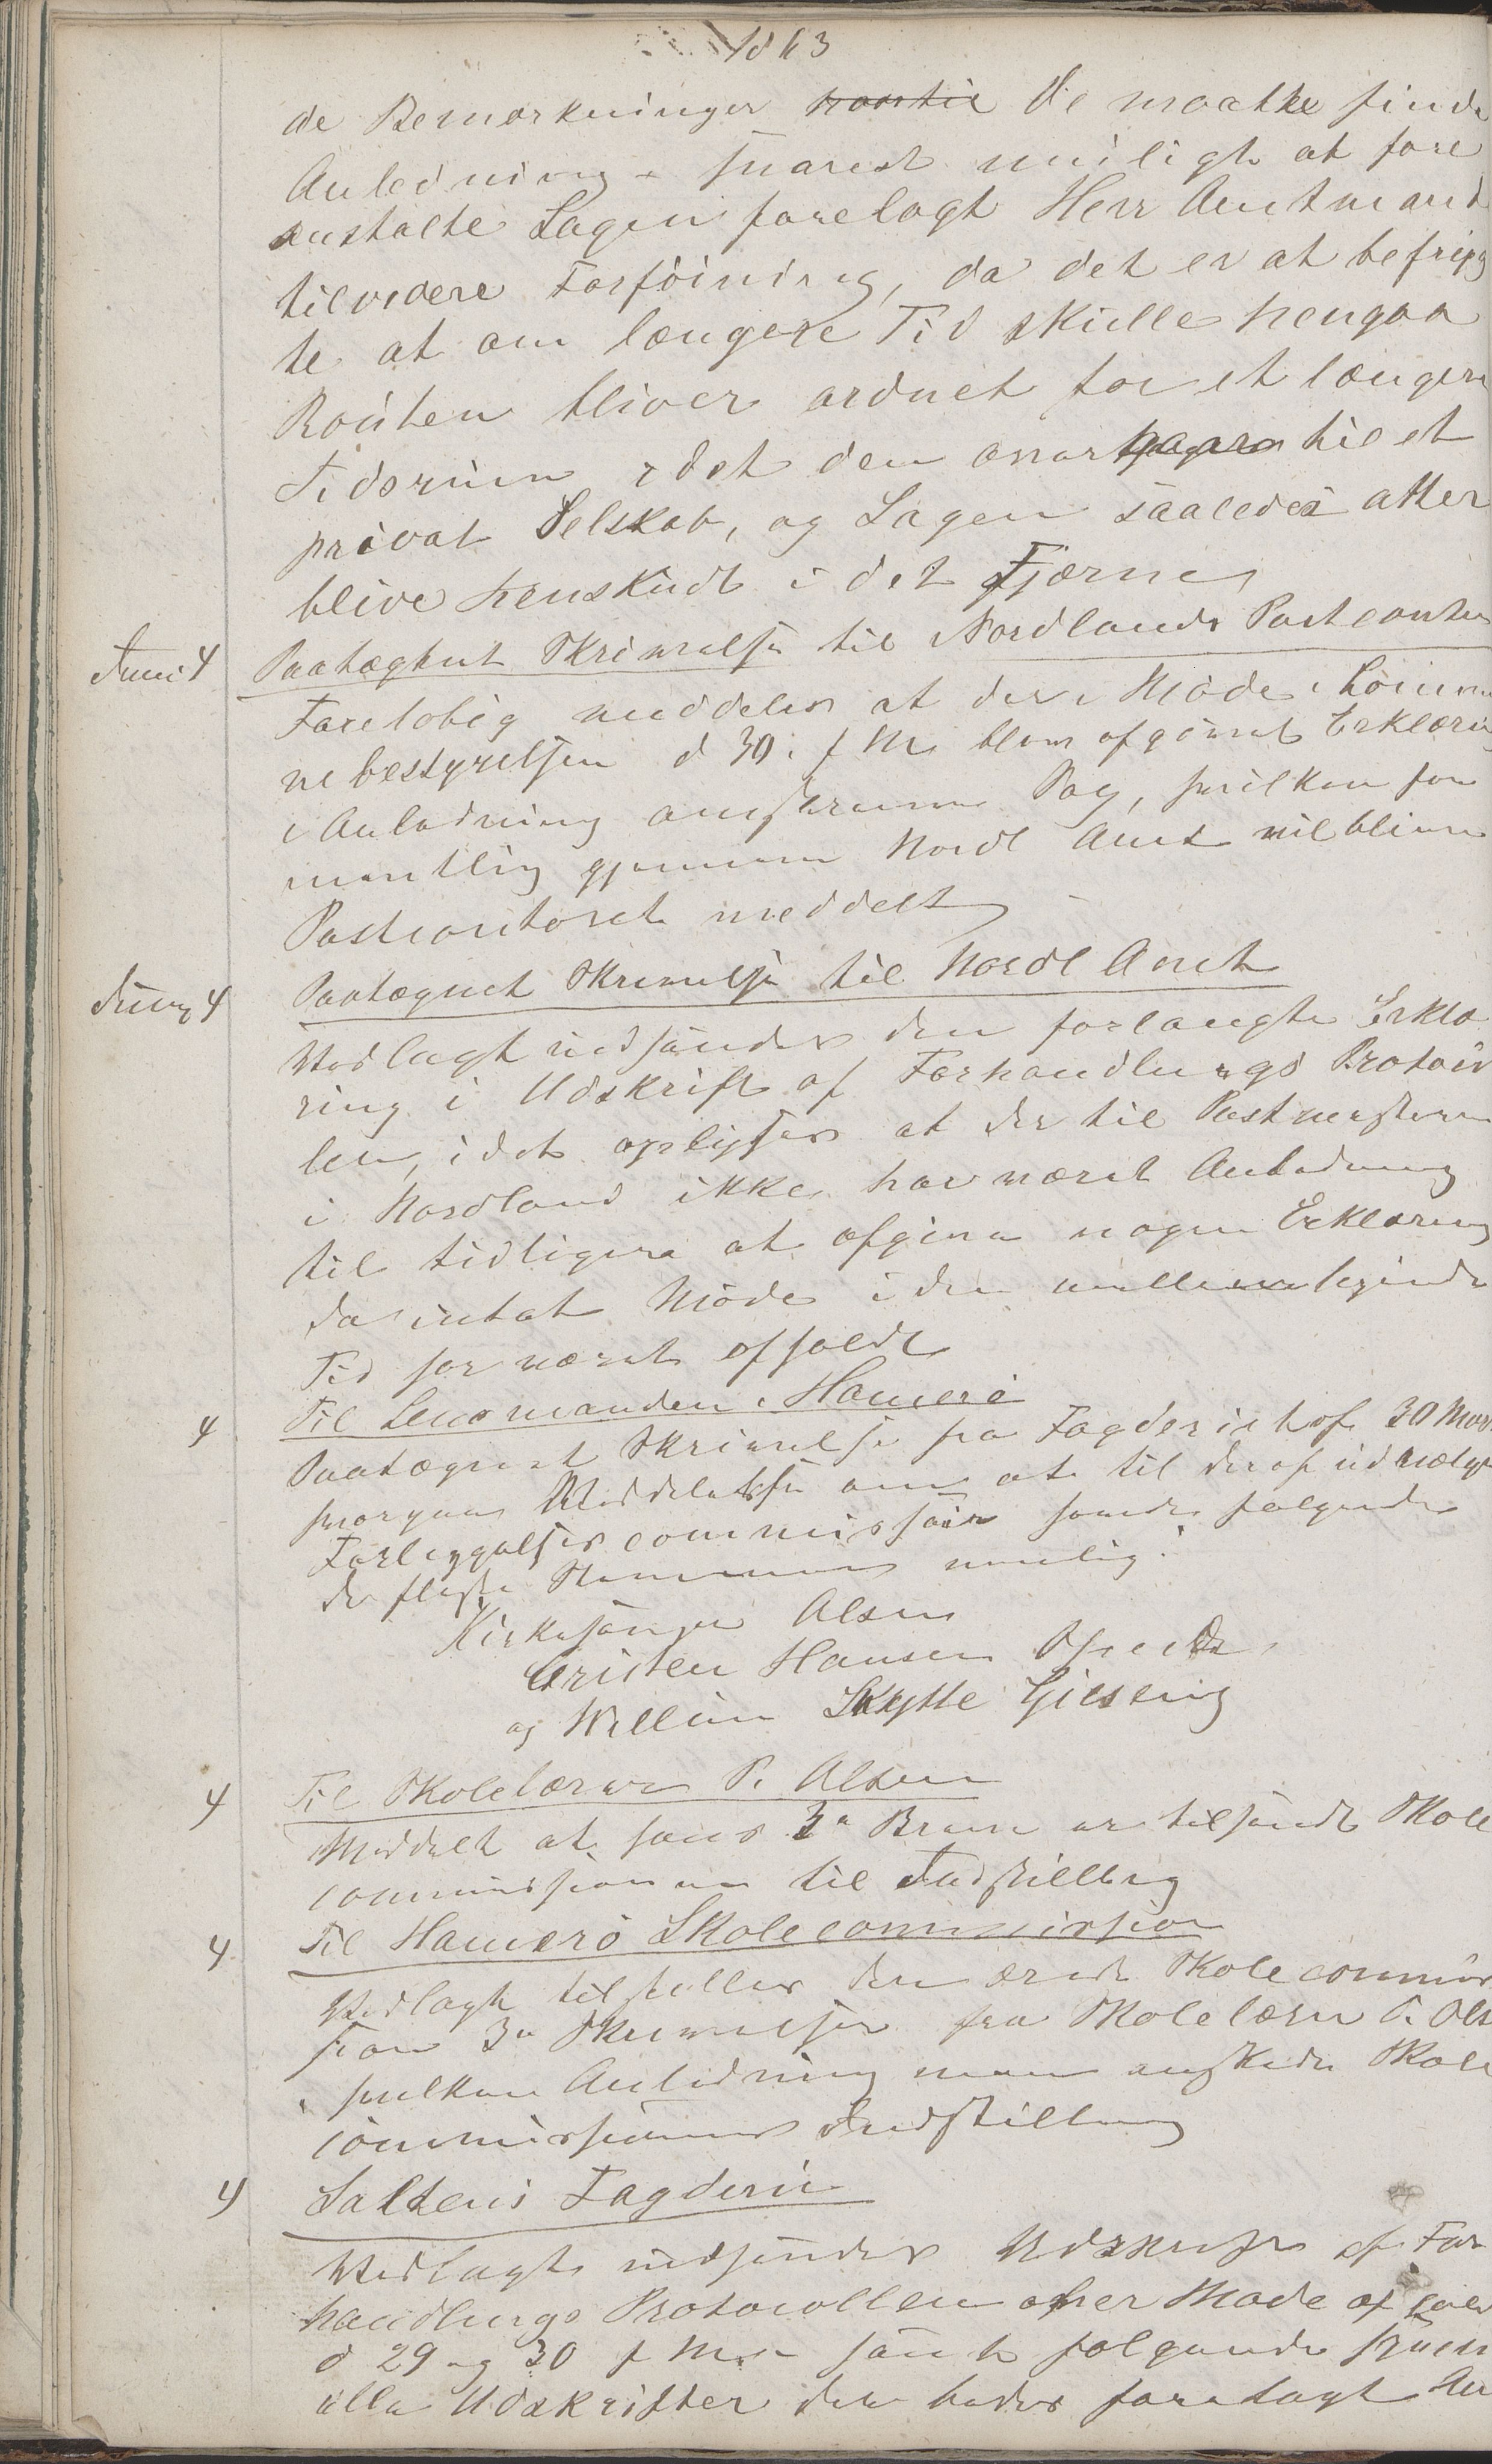 1863
de Bemærkninger hvortil De maatte finde
Anledning & snarest muligt at fore
anstalte Sagen forelagt Herr Amtmand
til videre Forföining, da det er at befryg
te at om længere Tid skulle hengaa
Routen bliver ordnet for et længere
Tidsrum idet den overtages til et
privat Selskab, og Sagen saaledes atter
blive henskudt i det Fjerne
Juni 4 Paategnet Skrivelse til Nordlands Postcontor
Foreløbig meddeles at der i Möde i Commu
nebestyrelsen d 30. f M. blev afgivet Erklæring
i Anledning ansførte Sag, hvilken for
mentlig gjennem Nordl Amt vil blive
Postcontoret meddelt
Juni 4 Paategnet Skrivelse til Nordl Amt
Vedlagt indsendes den forlangte Erklæ
ring i Udskrift af Forhandlings Protocol
len, idet oplyses at der til Postmesteren
i Nordland ikke har været Anledning
til tidligere at afgive nogen Erklæring
da intet Möde i den mellemliggende
Tid har været afholdt
4 Til Lensmanden i Hamerö
Paategnet Skrivelse fra Fogderiet af 30 Mars
hvorpaa Meddelelse om at til deraf udvælge
Forligelsescommissair havde følgende
de fleste Stemmer nemlig:
Kirkesanger Olsen
Cristen Hansen
og Villum Skytte Gilseng
4 Til Skolelærer P. Olsen
Meddelt at hans 3de Breve er tilsendt Skole
commissionen til Indstilling
4 Til Hamerö Skolecommission
Vedlagt tilstilles den ærede Skolecommis
sion 3de Skrivelser fra Skolelærer P. Ols
i hvilken Anledning man ønskede Skole
commissionens Indstilling
4 Saltens Fogderie
Vedlagt indsendes Udskrift af For
handlings Protocollen over Möde
d 29 og 30 f M. samt følgende
Udskrifter der bedes foretagt